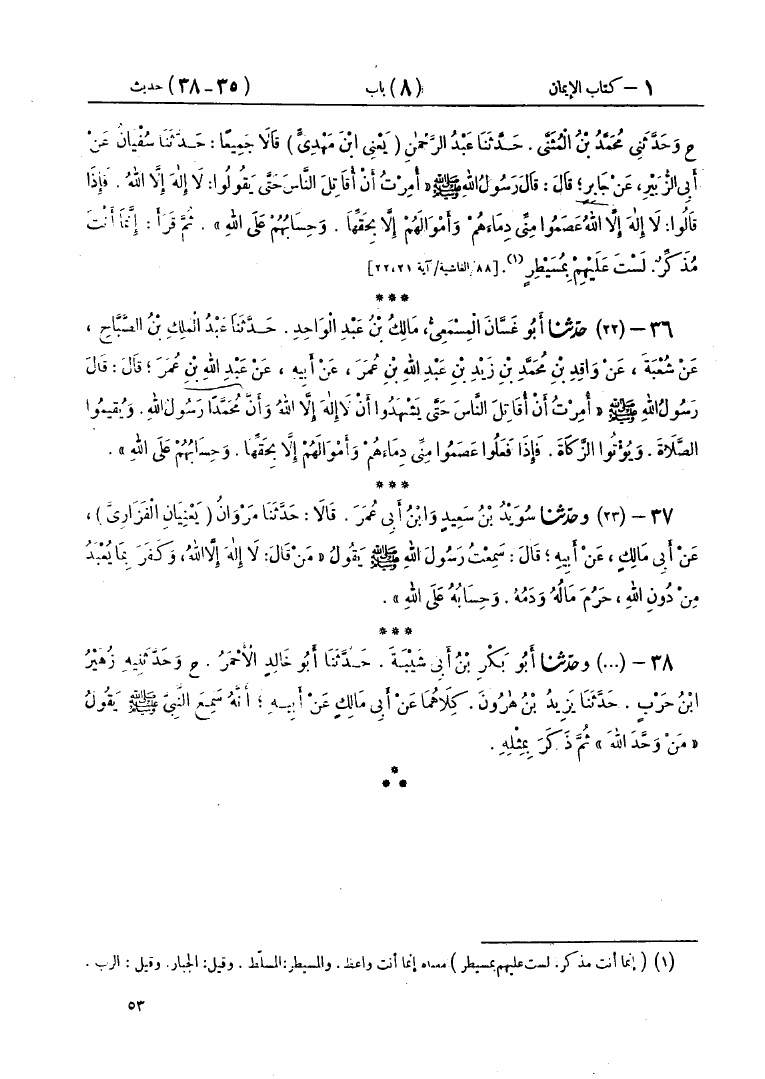 ١ – كتاب الإيمان (٨) باب (٣٥ – ٣٨) حديث
ح وَحَدَّثَنِي مُحَمَّدُ بْنُ الْمُثَنَّى . حَدَّثَنَا عَبْدُ الرَّحْمٰنِ ( يَعْنِي ابْنَ مَهْدِيٍّ ) قَالَا جَمِيعًا : حَدَّثَنَا سُفْيَانُ عَنْ
أَبِي الزُّبَيْرِ، عَنْ جَابِرٍ؛ قَالَ : قَالَ رَسُولُ اللهِ ﷺ « أُمِرْتُ أَنْ أُقَاتِلَ النَّاسَ حَتَّى يَقُولُوا: لَا إِلٰهَ إِلَّا اللهُ . فَإِذَا
قَالُوا: لَا إِلٰهَ إِلَّا اللهُ عَصَمُوا مِنِّي دِمَاءَهُمْ وَأَمْوَالَهُمْ إِلَّا بِحَقِّهَا . وَحِسَابُهُمْ عَلَى اللهِ » . ثُمَّ قَرَأَ : إِنَّمَا أَنْتَ
مُذَكِّرٌ. لَسْتَ عَلَيْهِمْ بِمُسَيْطِرٍ (١). [٨٨/الغاشية/ آية ٢٢،٢١]
***
٣٦ – (٢٢) حَدَّثَنَا أَبُو غَسَّانَ الْمِسْمَعِيُّ، مَالِكُ بْنُ عَبْدِ الْوَاحِدِ . حَدَّثَنَا عَبْدُ الْمَلِكِ بْنُ الصَّبَّاحِ ،
عَنْ شُعْبَةَ ، عَنْ وَاقِدِ بْنِ مُحَمَّدِ بْنِ زَيْدِ بْنِ عَبْدِ اللهِ بْنِ عُمَرَ ، عَنْ أَبِيهِ ، عَنْ عَبْدِ اللهِ بْنِ عُمَرَ ؛ قَالَ : قَالَ
رَسُولُ اللهِ ﷺ « أُمِرْتُ أَنْ أُقَاتِلَ النَّاسَ حَتَّى يَشْهَدُوا أَنْ لَا إِلٰهَ إِلَّا اللهُ وَأَنَّ مُحَمَّدًا رَسُولُ اللهِ. وَيُقِيمُوا
الصَّلَاةَ . وَيُؤْتُوا الزَّكَاةَ . فَإِذَا فَعَلُوا عَصَمُوا مِنِّي دِمَاءَهُمْ وَأَمْوَالَهُمْ إِلَّا بِحَقِّهَا . وَحِسَابُهُمْ عَلَى اللهِ » .
***
٣٧ – (٢٣) وَحَدَّثَنَا سُوَيْدُ بْنُ سَعِيدٍ وَابْنُ أَبِي عُمَرَ . قَالَا : حَدَّثَنَا مَرْوَانُ ( يَعْنِيَانِ الْفَزَارِيَّ ) ،
عَنْ أَبِي مَالِكٍ ، عَنْ أَبِيهِ ؛ قَالَ : سَمِعْتُ رَسُولَ اللهِ ﷺ يَقُولُ « مَنْ قَالَ: لَا إِلٰهَ إِلَّا اللهُ، وَكَفَرَ بِمَا يُعْبَدُ
مِنْ دُونِ اللهِ ، حَرُمَ مَالُهُ وَدَمُهُ . وَحِسَابُهُ عَلَى اللهِ » .
***
٣٨ – (...) وَحَدَّثَنَا أَبُو بَكْرِ بْنُ أَبِي شَيْبَةَ . حَدَّثَنَا أَبُو خَالِدٍ الْأَحْمَرُ . ح وَحَدَّثَنِيهِ زُهَيْرُ
ابْنُ حَرْبٍ . حَدَّثَنَا يَزِيدُ بْنُ هٰرُونَ . كِلَاهُمَا عَنْ أَبِي مَالِكٍ عَنْ أَبِيهِ ؛ أَنَّهُ سَمِعَ النَّبِيَّ ﷺ يَقُولُ
« مَنْ وَحَّدَ اللهَ » ثُمَّ ذَكَرَ بِمِثْلِهِ .
(١) ( إنما أنت مذكر. لست عليهم بمسيطر ) معناه إنما أنت واعظ . والمسيطر:المسلّط . وقيل: الجبار. وقيل : الرب .
٥٣